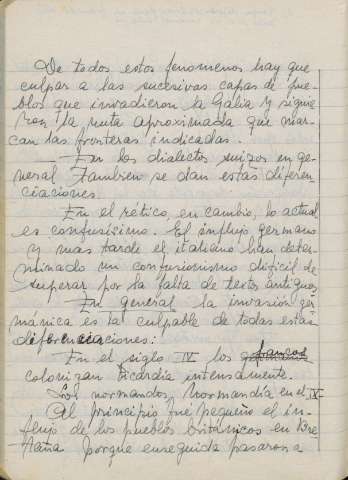 De todos estos fenomenos hay que
culpar a las sucesivas capas de pue-
blos que invadieron la Galia y siguie
ron la ruta aproximada que mar-
can las fronteras indicadas.
— En los dialectos suizos en ge-
neral tambien se dan estas diferen
ciaciones.
En el rético, en cambio, lo actual
es confusísimo. El influjo germano
y mas tarde el italiano han deter-
minado un confusionismo dificil de
superar por la falta de textos antiguos
— En general la invasión ger
mánica es la culpable de todas estas
diferenciaciones:
En el siglo IV los francos
colonizan Picardia intensamente.
Los normandos, Normandía en el IX-
Al principio fué pequeño el in-
flujo de los pueblos británicos en Bre
taña porque enseguida pasaron a